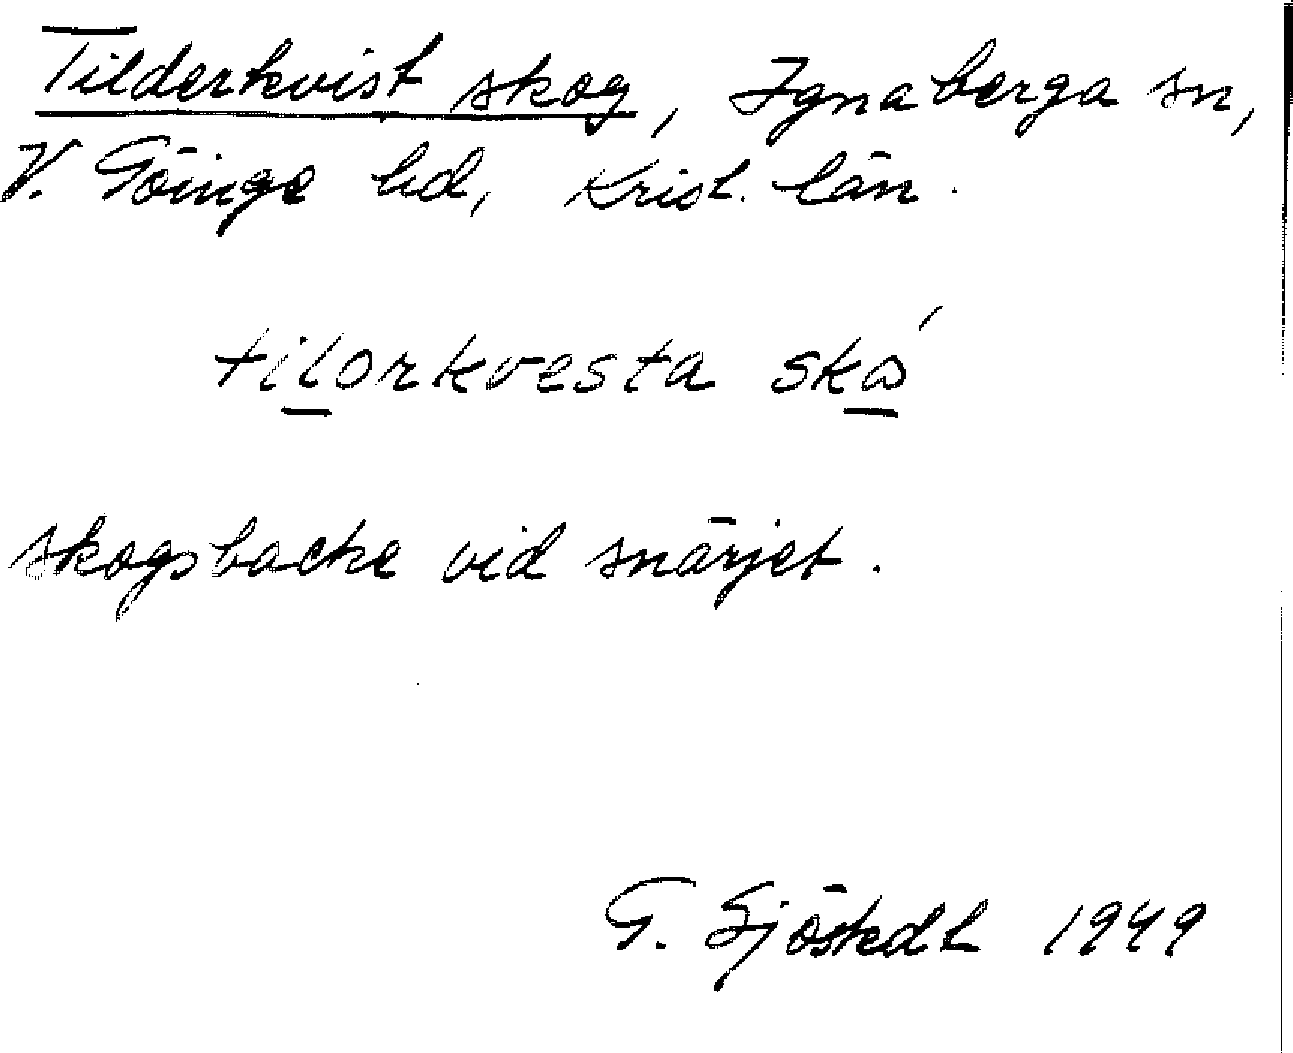 Tilderkvist skog, Ignaberga sn,
V. Göinge hd, Krist. län.
tilorkvesta ská
skogsbacke vid snärjet.
G. Sjöstedt 1949